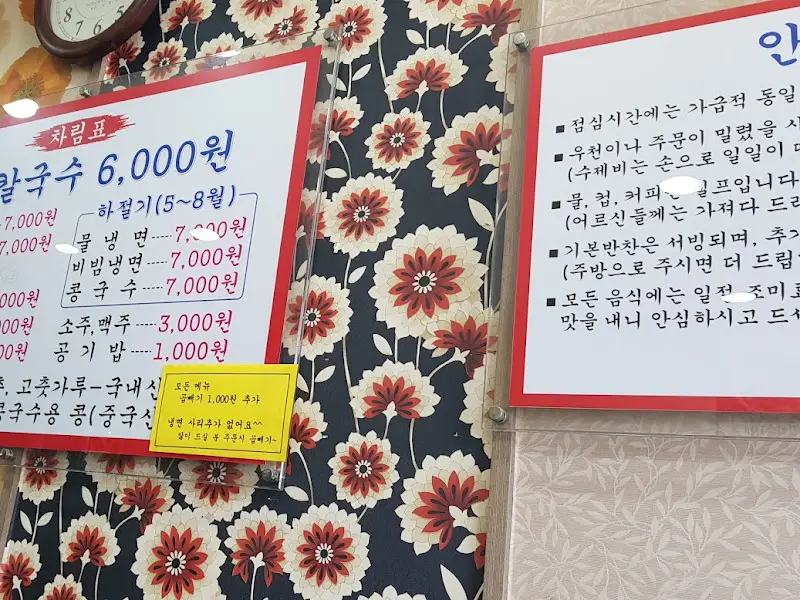 차림표
칼국수 6,000원
7,000원
7,000원
하절기(5~8월)
물냉면----7,000원
비빔냉면---7,000원
콩국수----7,000원
000원
000원
00원
소주,맥주----3,000원
공기밥----1,000원
고춧가루-국내산
콩국수용 콩(중국산
모든 메뉴
곱빼기 1,000원 추가
냉면 사리추가 없어요^^
많이 드실 분 주문시 곱빼기~
안
■ 점심시간에는 가급적 동일
■ 우천이나 주문이 밀렸을 시
(수제비는 손으로 일일이
■ 물, 컵, 커피는 셀프입니다
(어르신들께는 가져다 드리
■ 기본반찬은 서빙되며, 추가
(주방으로 주시면 더 드립
■ 모든 음식에는 일절 조미료
맛을 내니 안심하시고 드세